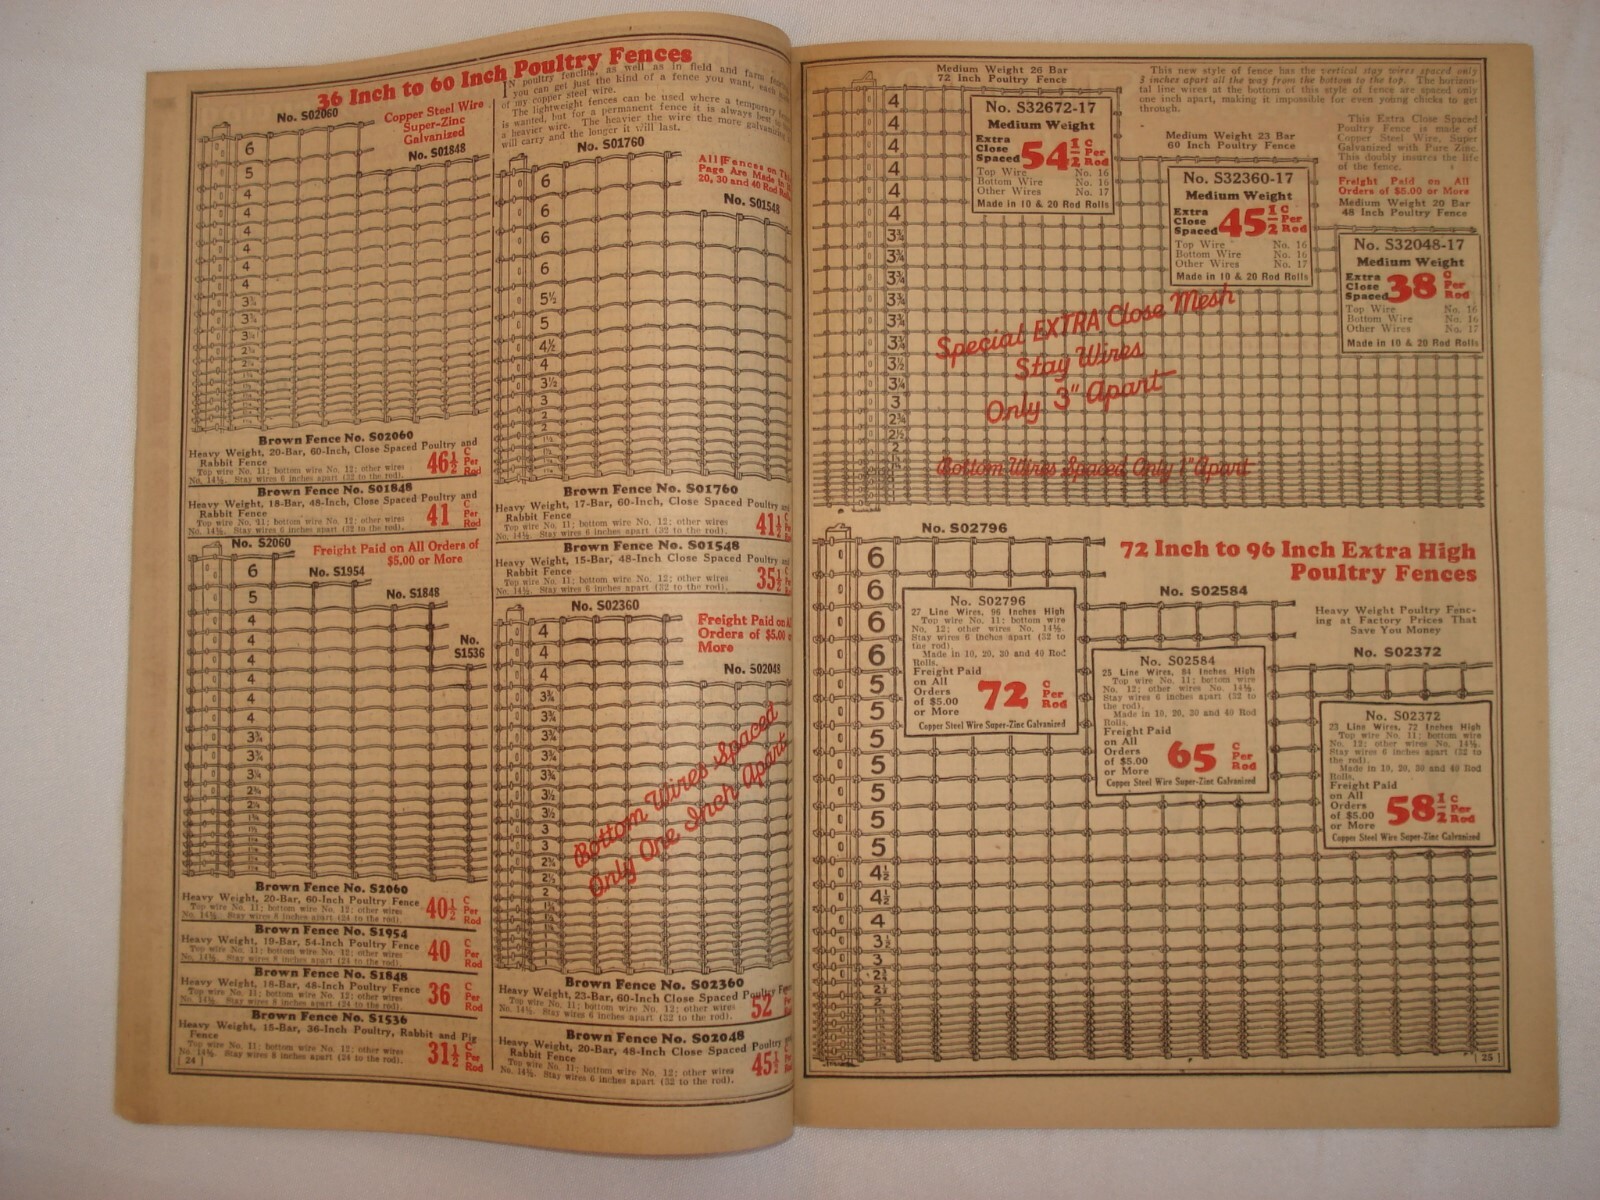 36 Inch to 60 Inch Poultry Fences
No. S02060
Copper Steel Wire
Super-Zinc
Galvanized
No. S01848
6
5
4
4
4
4
4
4
3¾
IN poultry fencing, as well as in field and farm
you can get just the kind of a fence you want, each
of my copper steel wire.
The lightweight fences can be used where a temporary
is wanted, but for a permanent fence it is always best to
a heavier wire. The heavier the wire the more galvanizing
will carry and the longer it will last.
No. S01760
All Fences on This
Page Are Made in
20, 30 and 40 Rod
No. S01548
6
6
6
6
5½
5
4½
4
3½
3
2
Brown Fence No. S02060
Heavy Weight, 20-Bar, 60-Inch, Close Spaced Poultry and
Rabbit Fence
Top wire No. 11; bottom wire No. 12; other wires
No. 14½. Stay wires 6 inches apart (32 to the rod).
46½ C Per Rod
Brown Fence No. S01848
Heavy Weight, 18-Bar, 48-Inch, Close Spaced Poultry and
Rabbit Fence
Top wire No. 11; bottom wire No. 12; other wires
No. 14½. Stay wires 6 inches apart (32 to the rod).
41 C Per Rod
Brown Fence No. S01760
Heavy Weight, 17-Bar, 60-Inch, Close Spaced Poultry and
Rabbit Fence
Top wire No. 11; bottom wire No. 12; other wires
No. 14½. Stay wires 6 inches apart (32 to the rod).
41½ C
Brown Fence No. S01548
Heavy Weight, 15-Bar, 48-Inch, Close Spaced Poultry
Rabbit Fence
Top wire No. 11; bottom wire No. 12; other wires
No. 14½. Stay wires 6 inches apart (32 to the rod).
35½
No. S2060
Freight Paid on All Orders of
$5.00 or More
No. S1954
No. S1848
No. S1536
6
5
4
4
4
4
4
4
3¾
3¾
3¼
Brown Fence No. S2060
Heavy Weight, 20-Bar, 60-Inch Poultry Fence
Top wire No. 11; bottom wire No. 12; other wires
No. 14½. Stay wires 8 inches apart (24 to the rod).
40½ C Per Rod
Brown Fence No. S1954
Heavy Weight, 19-Bar, 54-Inch Poultry Fence
Top wire No. 11; bottom wire No. 12; other wires
No. 14½. Stay wires 8 inches apart (24 to the rod).
40 C Per Rod
Brown Fence No. S1848
Heavy Weight, 18-Bar, 48-Inch Poultry Fence
Top wire No. 11; bottom wire No. 12; other wires
No. 14½. Stay wires 8 inches apart (24 to the rod).
36 C Per Rod
Brown Fence No. S1536
Heavy Weight, 15-Bar, 36-Inch Poultry, Rabbit and Pig
Fence
Top wire No. 11; bottom wire No. 12; other wires
No. 14½. Stay wires 8 inches apart (24 to the rod).
31½ C Per Rod
24
No. S02360
Freight Paid on All
Orders of $5.00 or
More
No. S02048
4
4
4
3¾
3¾
3¾
3¾
3¾
3½
3½
3
3
2¾
2½
2
Bottom Wires Spaced
Only One Inch Apart
Brown Fence No. S02360
Heavy Weight, 23-Bar, 60-Inch Close Spaced Poultry Fence
Top wire No. 11; bottom wire No. 12; other wires
No. 14½. Stay wires 6 inches apart (32 to the rod).
52
Brown Fence No. S02048
Heavy Weight, 20-Bar, 48-Inch Close Spaced Poultry
Rabbit Fence
Top wire No. 11; bottom wire No. 12; other wires
No. 14½. Stay wires 6 inches apart (32 to the rod).
45½
Medium Weight 26 Bar
72 Inch Poultry Fence
This new style of fence has the vertical stay wires spaced only
3 inches apart all the way from the bottom to the top. The horizon-
tal line wires at the bottom of this style of fence are spaced only
one inch apart, making it impossible for even young chicks to get
through.
No. S32672-17
Medium Weight
Extra
Close
Spaced
54½ C Per Rod
Top Wire No. 16
Bottom Wire No. 16
Other Wires No. 17
Made in 10 & 20 Rod Rolls
Medium Weight 23 Bar
60 Inch Poultry Fence
No. S32360-17
Medium Weight
Extra
Close
Spaced
45½ C Per Rod
Top Wire No. 16
Bottom Wire No. 16
Other Wires No. 17
Made in 10 & 20 Rod Rolls
This Extra Close Spaced
Poultry Fence is made of
Copper Steel Wire, Super
Galvanized with Pure Zinc.
This doubly insures the life
of the fence.
Freight Paid on All
Orders of $5.00 or More
Medium Weight 20 Bar
48 Inch Poultry Fence
No. S32048-17
Medium Weight
Extra
Close
Spaced
38 C Per Rod
Top Wire No. 16
Bottom Wire No. 16
Other Wires No. 17
Made in 10 & 20 Rod Rolls
4
4
4
4
4
4
3¾
3¾
3¾
3¾
3¾
3¾
3½
3¼
3
2¾
2½
2
Special EXTRA Close Mesh
Stay Wires
Only 3" Apart
Bottom Wires Spaced Only 1" Apart
No. S02796
72 Inch to 96 Inch Extra High
Poultry Fences
6
6
6
6
5
5
5
5
5
5
5
4½
4½
4
3½
3
2¾
2½
2
No. S02796
27 Line Wires, 96 Inches High
Top wire No. 11; bottom wire
No. 12; other wires No. 14½.
Stay wires 6 inches apart (32 to
the rod).
Made in 10, 20, 30 and 40 Rod
Rolls.
Freight Paid
on All
Orders
of $5.00
or More
72 C Per Rod
Copper Steel Wire Super-Zinc Galvanized
No. S02584
Heavy Weight Poultry Fenc-
ing at Factory Prices That
Save You Money
No. S02584
25 Line Wires, 84 Inches High
Top wire No. 11; bottom wire
No. 12; other wires No. 14½.
Stay wires 6 inches apart (32 to
the rod).
Made in 10, 20, 30 and 40 Rod
Rolls.
Freight Paid
on All
Orders
of $5.00
or More
65 C Per Rod
Copper Steel Wire Super-Zinc Galvanized
No. S02372
No. S02372
23 Line Wires, 72 Inches High
Top wire No. 11; bottom wire
No. 12; other wires No. 14½.
Stay wires 6 inches apart (32 to
the rod).
Made in 10, 20, 30 and 40 Rod
Rolls.
Freight Paid
on All
Orders
of $5.00
or More
58½ C Per Rod
Copper Steel Wire Super-Zinc Galvanized
25